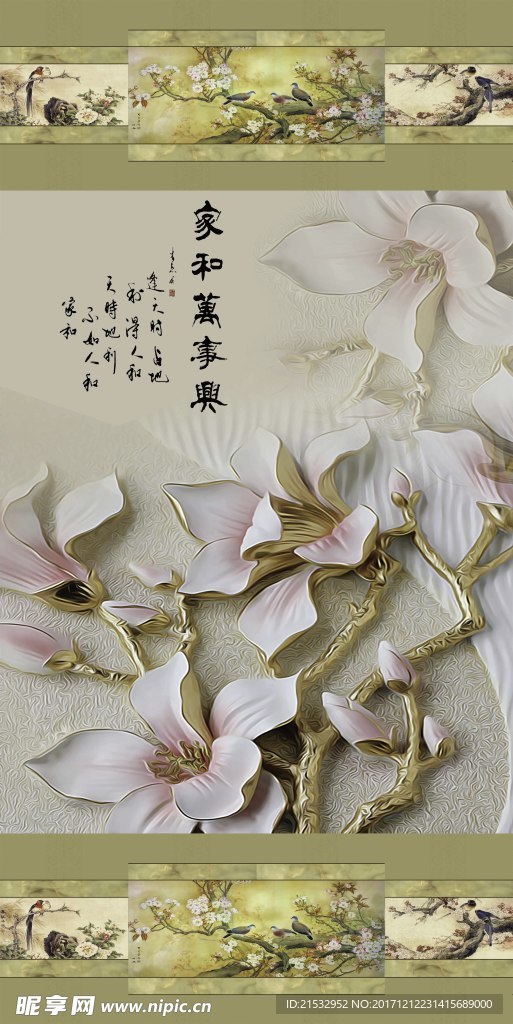 家和萬事興
逢天时占地
利得人和
天時地利
不如人和
家和
昵享网 www.nipic.cn
ID:21532952 NO:20171212231415689000